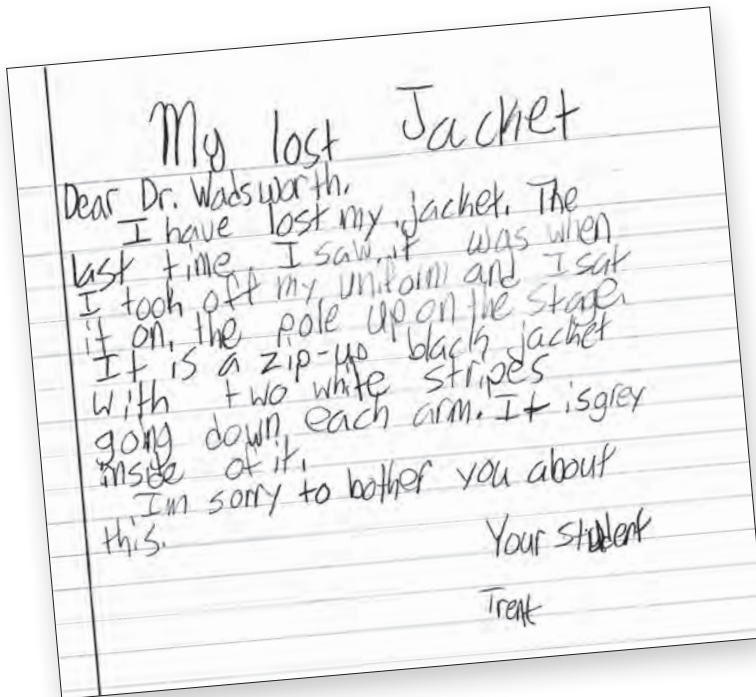 My lost Jacket
Dear Dr. Wadsworth,
I have lost my jacket. The
last time I saw it was when
I took off my uniform and I sat
it on the pole up on the stage.
It is a zip-up black jacket
with two white stripes
going down each arm. It is grey
inside of it.
I'm sorry to bother you about
this.
Your student
Trent